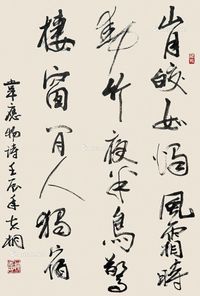 山月皎如燭風霜時
動竹夜半鳥驚
棲窗间人獨宿
韋應物诗壬辰年